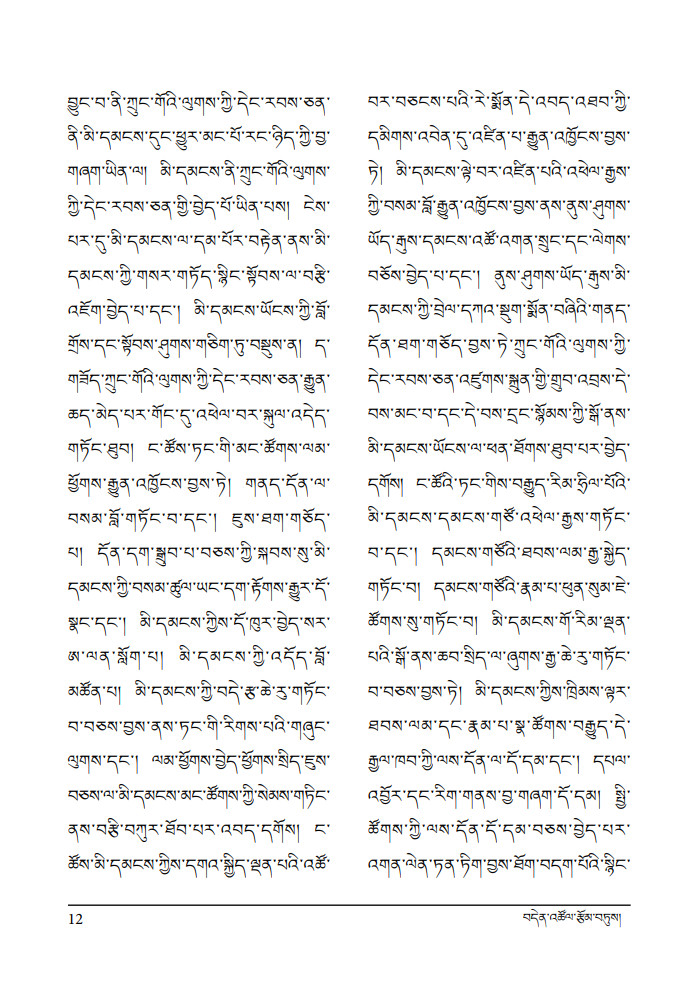 བྱུང་བ་ནི་ཀྲུང་གོའི་ལུགས་ཀྱི་དེང་རབས་ཅན་
ནི་མི་དམངས་དུང་ཕྱུར་མང་པོ་རང་ཉིད་ཀྱི་བྱ་
གཞག་ཡིན་ལ། མི་དམངས་ནི་ཀྲུང་གོའི་ལུགས་
ཀྱི་དེང་རབས་ཅན་གྱི་བྱེད་པོ་ཡིན་པས། ངེས་
པར་དུ་མི་དམངས་ལ་དམ་པོར་བརྟེན་ནས་མི་
དམངས་ཀྱི་གསར་གཏོད་སྙིང་སྟོབས་ལ་བརྩི་
འཇོག་བྱེད་པ་དང་། མི་དམངས་ཡོངས་ཀྱི་བློ་
གྲོས་དང་སྟོབས་ཤུགས་གཅིག་ཏུ་བསྡུས་ན། ད་
གཟོད་ཀྲུང་གོའི་ལུགས་ཀྱི་དེང་རབས་ཅན་རྒྱུན་
ཆད་མེད་པར་གོང་དུ་འཕེལ་བར་སྐུལ་འདེད་
གཏོང་ཐུབ། ང་ཚོས་ཏང་གི་མང་ཚོགས་ལམ་
ཕྱོགས་རྒྱུན་འཁྱོངས་བྱས་ཏེ། གནད་དོན་ལ་
བསམ་བློ་གཏོང་བ་དང་། ཇུས་ཐག་གཅོད་
པ། དོན་དག་སྒྲུབ་པ་བཅས་ཀྱི་སྐབས་སུ་མི་
དམངས་ཀྱི་བསམ་ཚུལ་ཡང་དག་རྟོགས་རྒྱུར་དོ་
སྣང་དང་། མི་དམངས་ཀྱིས་དོ་ཁུར་བྱེད་སར་
ཨ་ལན་སློག་པ། མི་དམངས་ཀྱི་འདོད་བློ་
མཚོན་པ། མི་དམངས་ཀྱི་བདེ་རྩ་ཆེ་རུ་གཏོང་
བ་བཅས་བྱས་ནས་ཏང་གི་རིགས་པའི་གཞུང་
ལུགས་དང་། ལམ་ཕྱོགས་བྱེད་ཕྱོགས་སྲིད་ཇུས་
བཅས་ལ་མི་དམངས་མང་ཚོགས་ཀྱི་སེམས་གཏིང་
ནས་བརྩི་བཀུར་ཐོབ་པར་འབད་དགོས། ང་
ཚོས་མི་དམངས་ཀྱིས་དགའ་སྐྱིད་ལྡན་པའི་འཚོ་
བར་བཅངས་པའི་རེ་སྨོན་དེ་འབད་འཐབ་ཀྱི་
དམིགས་འབེན་དུ་འཛིན་པ་རྒྱུན་འཁྱོངས་བྱས་
ཏེ། མི་དམངས་ལྟེ་བར་འཛིན་པའི་འཕེལ་རྒྱས་
ཀྱི་བསམ་བློ་རྒྱུན་འཁྱོངས་བྱས་ནས་ནུས་ཤུགས་
ཡོད་རྒུས་དམངས་འཚོ་འགན་སྲུང་དང་ལེགས་
བཅོས་བྱེད་པ་དང་། ནུས་ཤུགས་ཡོད་རྒུས་མི་
དམངས་ཀྱི་བྲེལ་དཀའ་སྡུག་སྨོན་བཞིའི་གནད་
དོན་ཐག་གཅོད་བྱས་ཏེ་ཀྲུང་གོའི་ལུགས་ཀྱི་
དེང་རབས་ཅན་འཛུགས་སྐྲུན་གྱི་གྲུབ་འབྲས་དེ་
བས་མང་བ་དང་དེ་བས་དྲང་སྙོམས་ཀྱི་སྒོ་ནས་
མི་དམངས་ཡོངས་ལ་ཕན་ཐོགས་ཐུབ་པར་བྱེད་
དགོས། ང་ཚོའི་ཏང་གིས་བརྒྱུད་རིམ་ཧྲིལ་པོའི་
མི་དམངས་དམངས་གཙོ་འཕེལ་རྒྱས་གཏོང་
བ་དང་། དམངས་གཙོའི་ཐབས་ལམ་རྒྱ་སྐྱེད་
གཏོང་བ། དམངས་གཙོའི་རྣམ་པ་ཕུན་སུམ་ཇེ་
ཚོགས་སུ་གཏོང་བ། མི་དམངས་གོ་རིམ་ལྡན་
པའི་སྒོ་ནས་ཆབ་སྲིད་ལ་ཞུགས་རྒྱ་ཆེ་རུ་གཏོང་
བ་བཅས་བྱས་ཏེ། མི་དམངས་ཀྱིས་ཁྲིམས་ལྟར་
ཐབས་ལམ་དང་རྣམ་པ་སྣ་ཚོགས་བརྒྱུད་དེ་
རྒྱལ་ཁབ་ཀྱི་ལས་དོན་ལ་དོ་དམ་དང་། དཔལ་
འབྱོར་དང་རིག་གནས་བྱ་གཞག་དོ་དམ། སྤྱི་
ཚོགས་ཀྱི་ལས་དོན་དོ་དམ་བཅས་བྱེད་པར་
འགན་ལེན་ཏན་ཏིག་བྱས་ཐོག་བདག་པོའི་སྙིང་
12
བདེན་འཚོལ་རྩོམ་བཏུས།